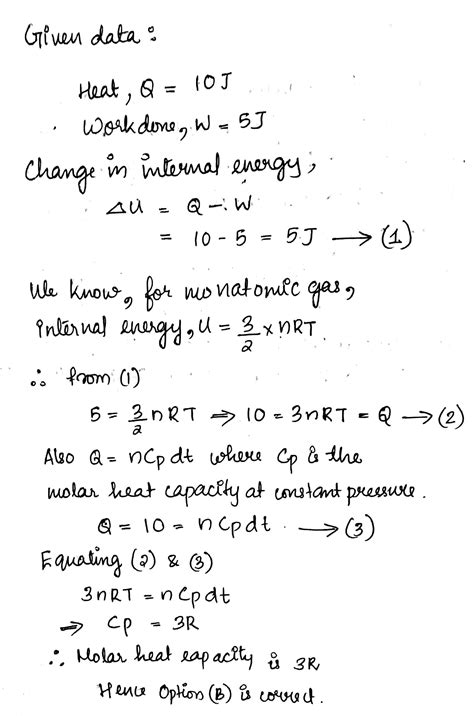 Given data :
Heat, Q = 10J
Workdone, W = 5J
Change in internal energy,
ΔU = Q - W
= 10 - 5 = 5J → (1)
We know, for monatomic gas,
internal energy, U = 3/2 × nRT
∴ from (1)
5 = 3/2 nRT ⇒ 10 = 3nRT = Q → (2)
Also Q = nCpdt where Cp is the
molar heat capacity at constant pressure.
Q = 10 = nCpdt. → (3)
Equating (2) & (3)
3nRT = nCpdt
⇒ Cp = 3R
∴ Molar heat capacity is 3R
Hence Option (B) is correct.